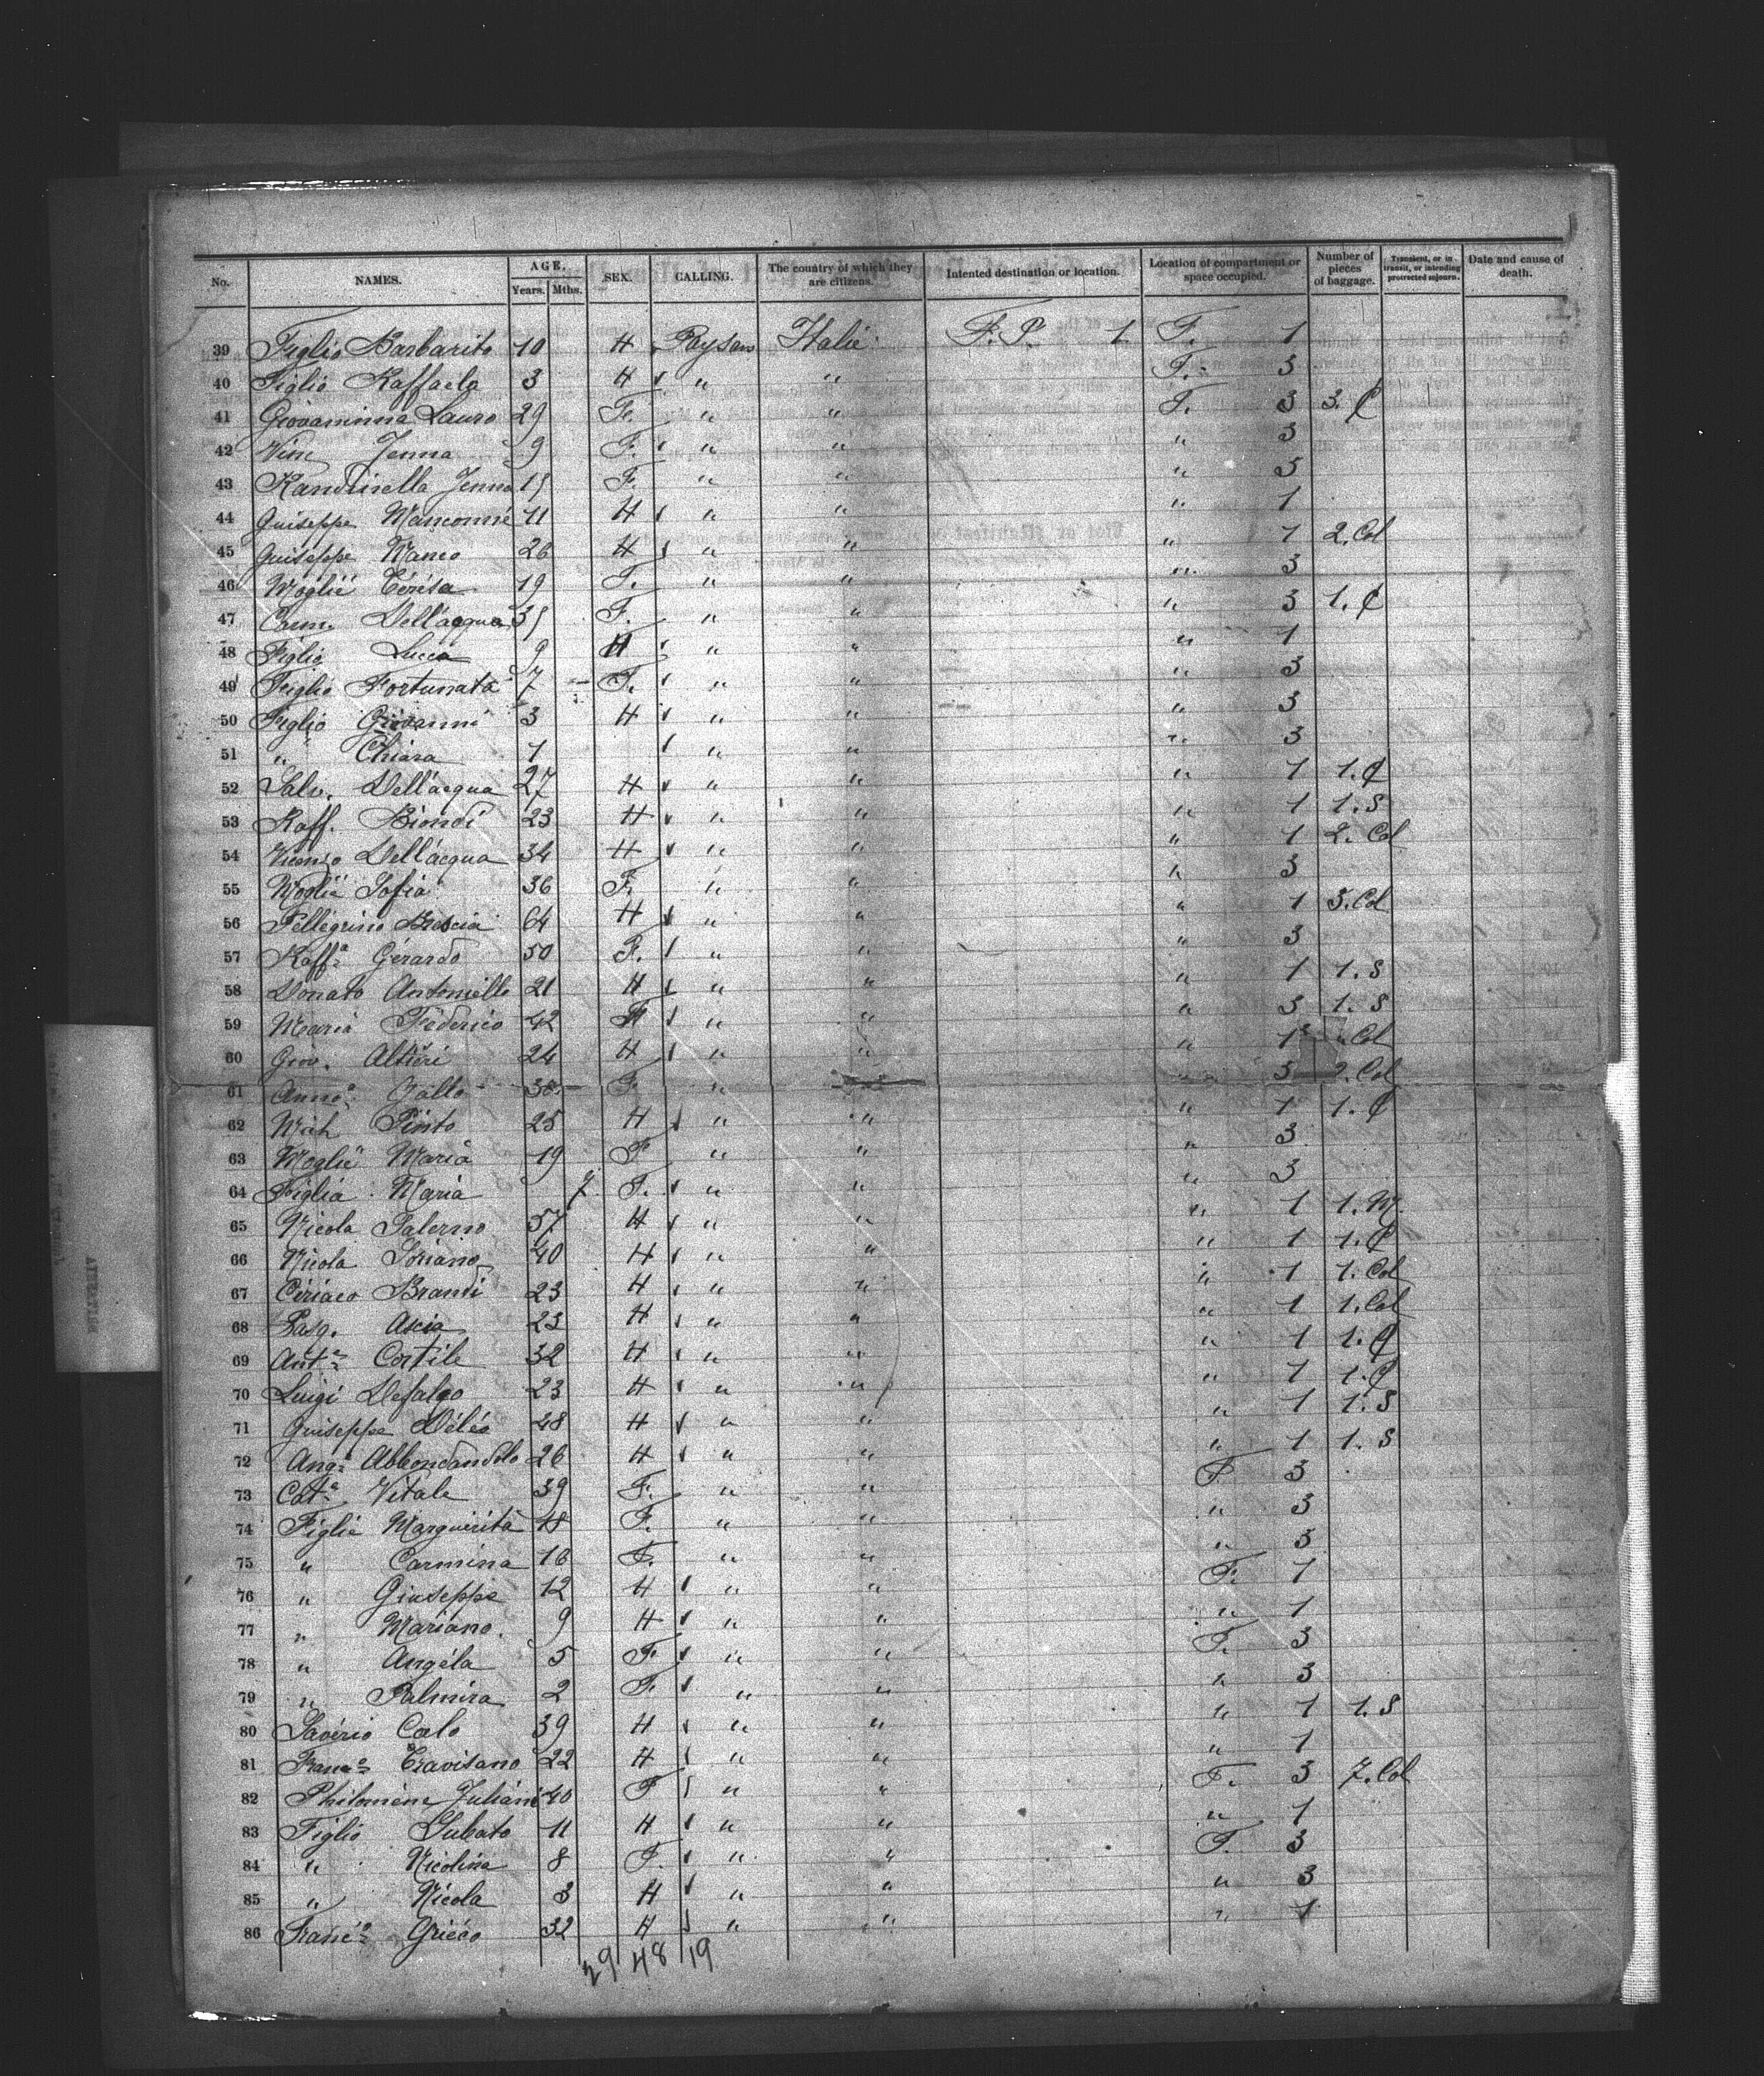 No. NAMES. AGE. Years. Mths. SEX. CALLING. The country of which they are citizens. Intented destination or location. Location of compartment or space occupied. Number of pieces of baggage. Transient, or in transit, or intending protracted sojourn. Date and cause of death.
39 Figlio Barbarito 10 H Paysan Italie F. P. 1 F. 1
40 Figlio Raffaela 3 H " " F. 3
41 Giovaninna Lauro 29 F. " " F. 3 3. C
42 Vinc Jenna 9 F. " " " 3
43 Jenna 15 F. " " " 3
44 Guiseppe 11 H " " " 1
45 Guiseppe Manco 26 H " " " 1 2. Col
46 Moglie Térésa 19 F. " " " 3
47 Carm. Dell'acqua 35 F. " " " 3 1. C
48 Figlio Lucca 9 H " " " 1
49 Figlia Fortunata 7 F. " " " 3
50 Figlio Giovanni 3 H " " " 3
51 " Chiara 1 " " " 3
52 Salv. Dell'acqua 27 H " " " 1 1. C
53 Raff. Biondi 23 H " " " 1 1. S
54 Vicenzo Dell'acqua 34 H " " " 1 2. Col
55 Moglie Sofia 36 F. " " " 3
56 Pellegrino Brescia 64 H " " " 1 3. Col
57 Raffa Gérardo 50 F. " " " 3
58 Donato Antoniello 21 H " " " 1 1. S
59 Maria Féderico 42 " " " 3 1. S
60 Giov. Altiéri 24 H " " " 1 Col
61 Anna Gallo 38 F. " " " 3 2. Col
62 Mich Pinto 25 H " " " 1 1. C
63 Moglie Maria 19 F " " " 3
64 Figlia Maria 7 F. " " " 3
65 Nicola Palerno 57 H " " " 1 1. M.
66 Nicola Soriano 40 H " " " 1 1. C
67 Ciriaco Brandi 23 H " " " 1 1. Col
68 Pasq. Ascia 23 H " " " 1 1. Col
69 Anto Cortile 32 H " " " 1 1. C
70 Luigi Defalgo 23 H " " " 1 1. C
71 Guiseppe Déléo 48 H " " " 1 1. S
72 Ango Abbondandolo 26 H " " " 1 1. S
73 Cata Vitale 39 F. " " F. 3
74 Figlia Marguérita 18 F. " " " 3
75 " Carmina 16 F. " " " 3
76 " Giuseppe 12 H " " F. 1
77 " Mariano. 9 H " " " 1
78 " Angéla 5 F. " " F. 3
79 " Palmira 2 F. " " " 3
80 Savério Calo 39 H " " " 1 1. S
81 Franco Travisano 22 H " " " 1
82 Philoméne Juliani 40 F " " F. 3 7. Col
83 Figlio Sabato 11 H " " " 1
84 " Nicolina 8 F. " " F. 3
85 " Nicola 3 H " " " 3
86 Franco Griéco 32 H " " " 1
29 48 19